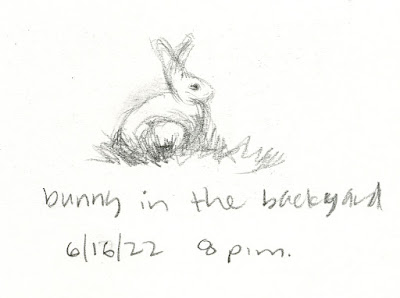 bunny in the backyard
6/16/22 8 p.m.